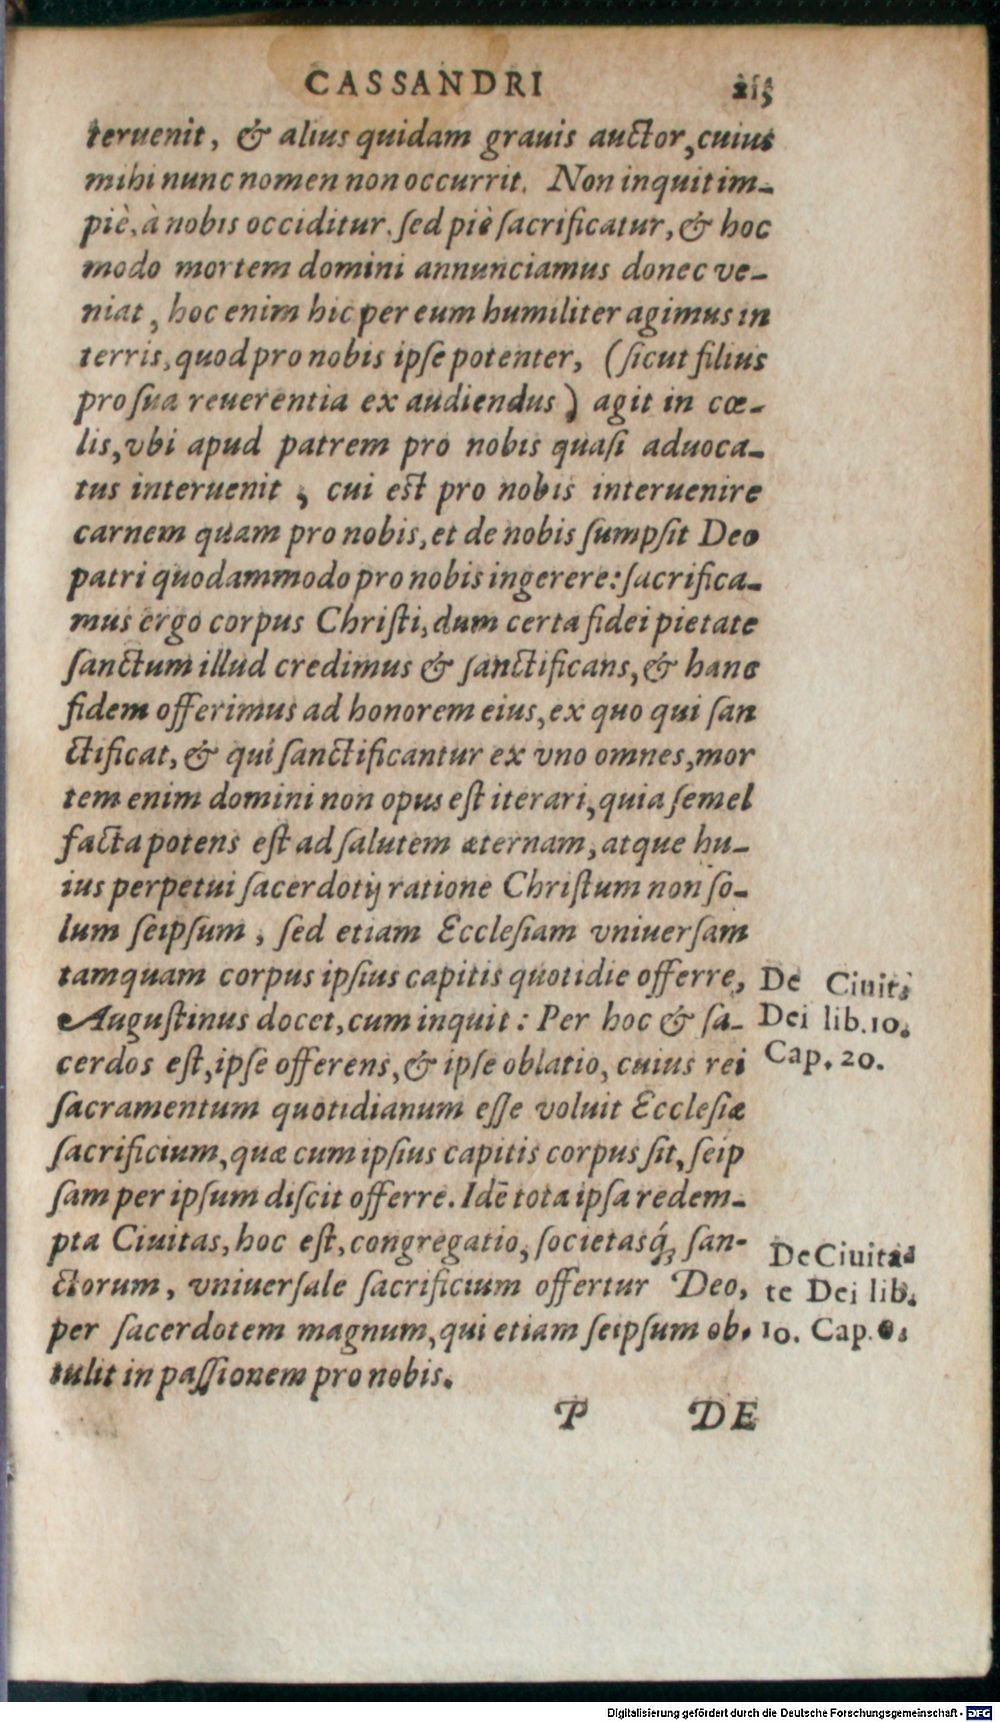 CASSANDRI 215
teruenit, & alius quidam grauis auctor, cuius
mihi nunc nomen non occurrit. Non inquit im-
piè, à nobis occiditur, sed piè sacrificatur, & hoc
modo mortem domini annunciamus donec ve-
niat, hoc enim hic per eum humiliter agimus in
terris, quod pro nobis ipse potenter, (sicut filius
pro sua reuerentia ex audiendus) agit in cœ-
lis, vbi apud patrem pro nobis quasi aduoca-
tus interuenit, cui est pro nobis interuenire
carnem quam pro nobis, et de nobis sumpsit Deo
patri quodammodo pro nobis ingerere: sacrifica-
mus ergo corpus Christi, dum certa fidei pietate
sanctum illud credimus & sanctificans, & hanc
fidem offerimus ad honorem eius, ex quo qui san
ctificat, & qui sanctificantur ex vno omnes, mor
tem enim domini non opus est iterari, quia semel
facta potens est ad salutem æternam, atque hu-
ius perpetui sacerdotij ratione Christum non so-
lum seipsum, sed etiam Ecclesiam vniuersam
tamquam corpus ipsius capitis quotidie offerre,
Augustinus docet, cum inquit: Per hoc & sa-
cerdos est, ipse offerens, & ipse oblatio, cuius rei
sacramentum quotidianum esse voluit Ecclesiæ
sacrificium, quæ cum ipsius capitis corpus sit, seip
sam per ipsum discit offerre. Idē tota ipsa redem-
pta Ciuitas, hoc est, congregatio, societasq́; san-
ctorum, vniuersale sacrificium offertur Deo,
per sacerdotem magnum, qui etiam seipsum ob-
tulit in passionem pro nobis.
De Ciuit.
Dei lib. 10.
Cap. 20.
De Ciuita-
te Dei lib.
10. Cap.
P DE
Digitalisierung gefördert durch die Deutsche Forschungsgemeinschaft - DFG